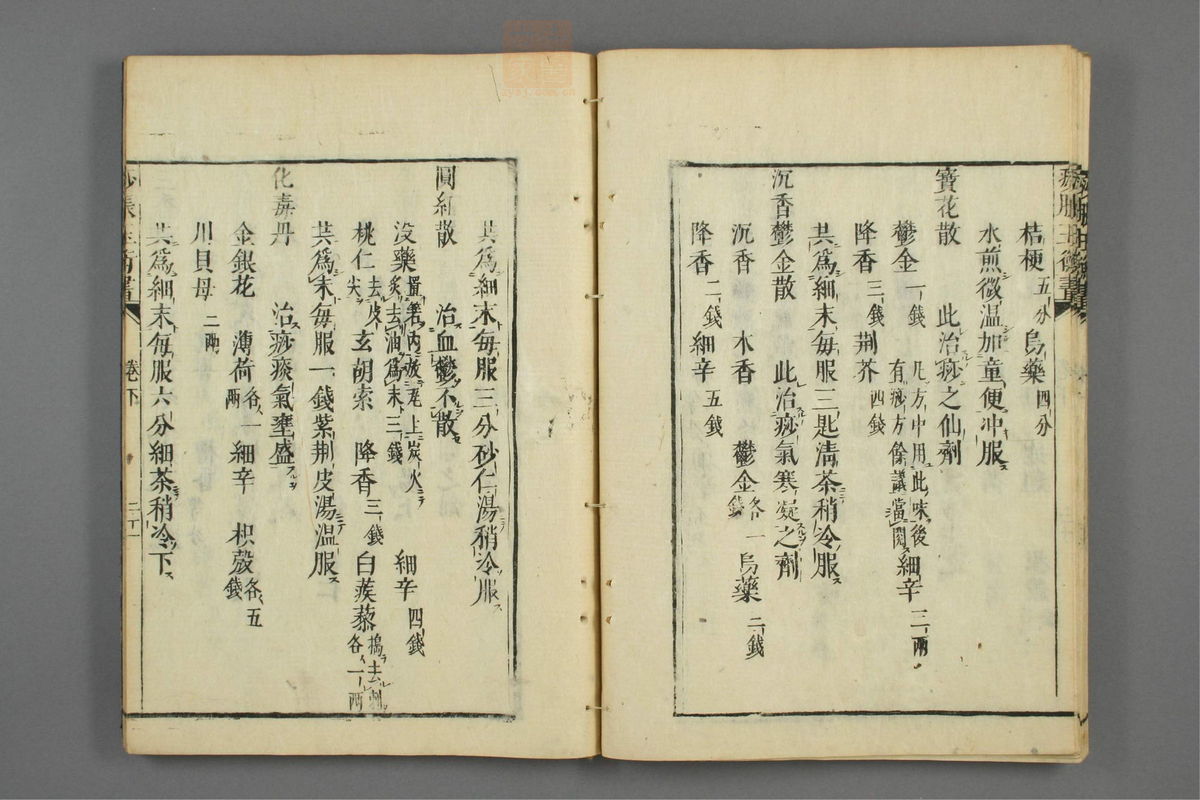 痧脹玉衡書
桔梗五分 烏藥四分
水煎微温加童便冲服
寶花散 此治痧之仙劑
鬱金一錢 凡方中用此味後有痧方餘議當閱 細辛三兩
降香三錢 荆芥四錢
共爲細末每服三匙清茶稍冷服
沉香鬱金散 此治痧氣寒凝之劑
沉香 木香 鬱金各一錢 烏藥二錢
降香二錢 細辛五錢
共爲細末每服三分砂仁湯稍冷服
圓紅散 治血鬱不散
没藥置箬内放瓦上炭火炙去油爲末三錢 細辛四錢
桃仁去皮尖 玄胡索 降香三錢 白蒺藜搗去刺各一兩
共爲末每服一錢紫荆皮湯温服
化毒丹 治痧痰氣壅盛
金銀花 薄荷各一兩 細辛 枳殼各五錢
川貝母二兩
共爲細末每服六分細茶稍冷下
痧脹玉衡書 卷下